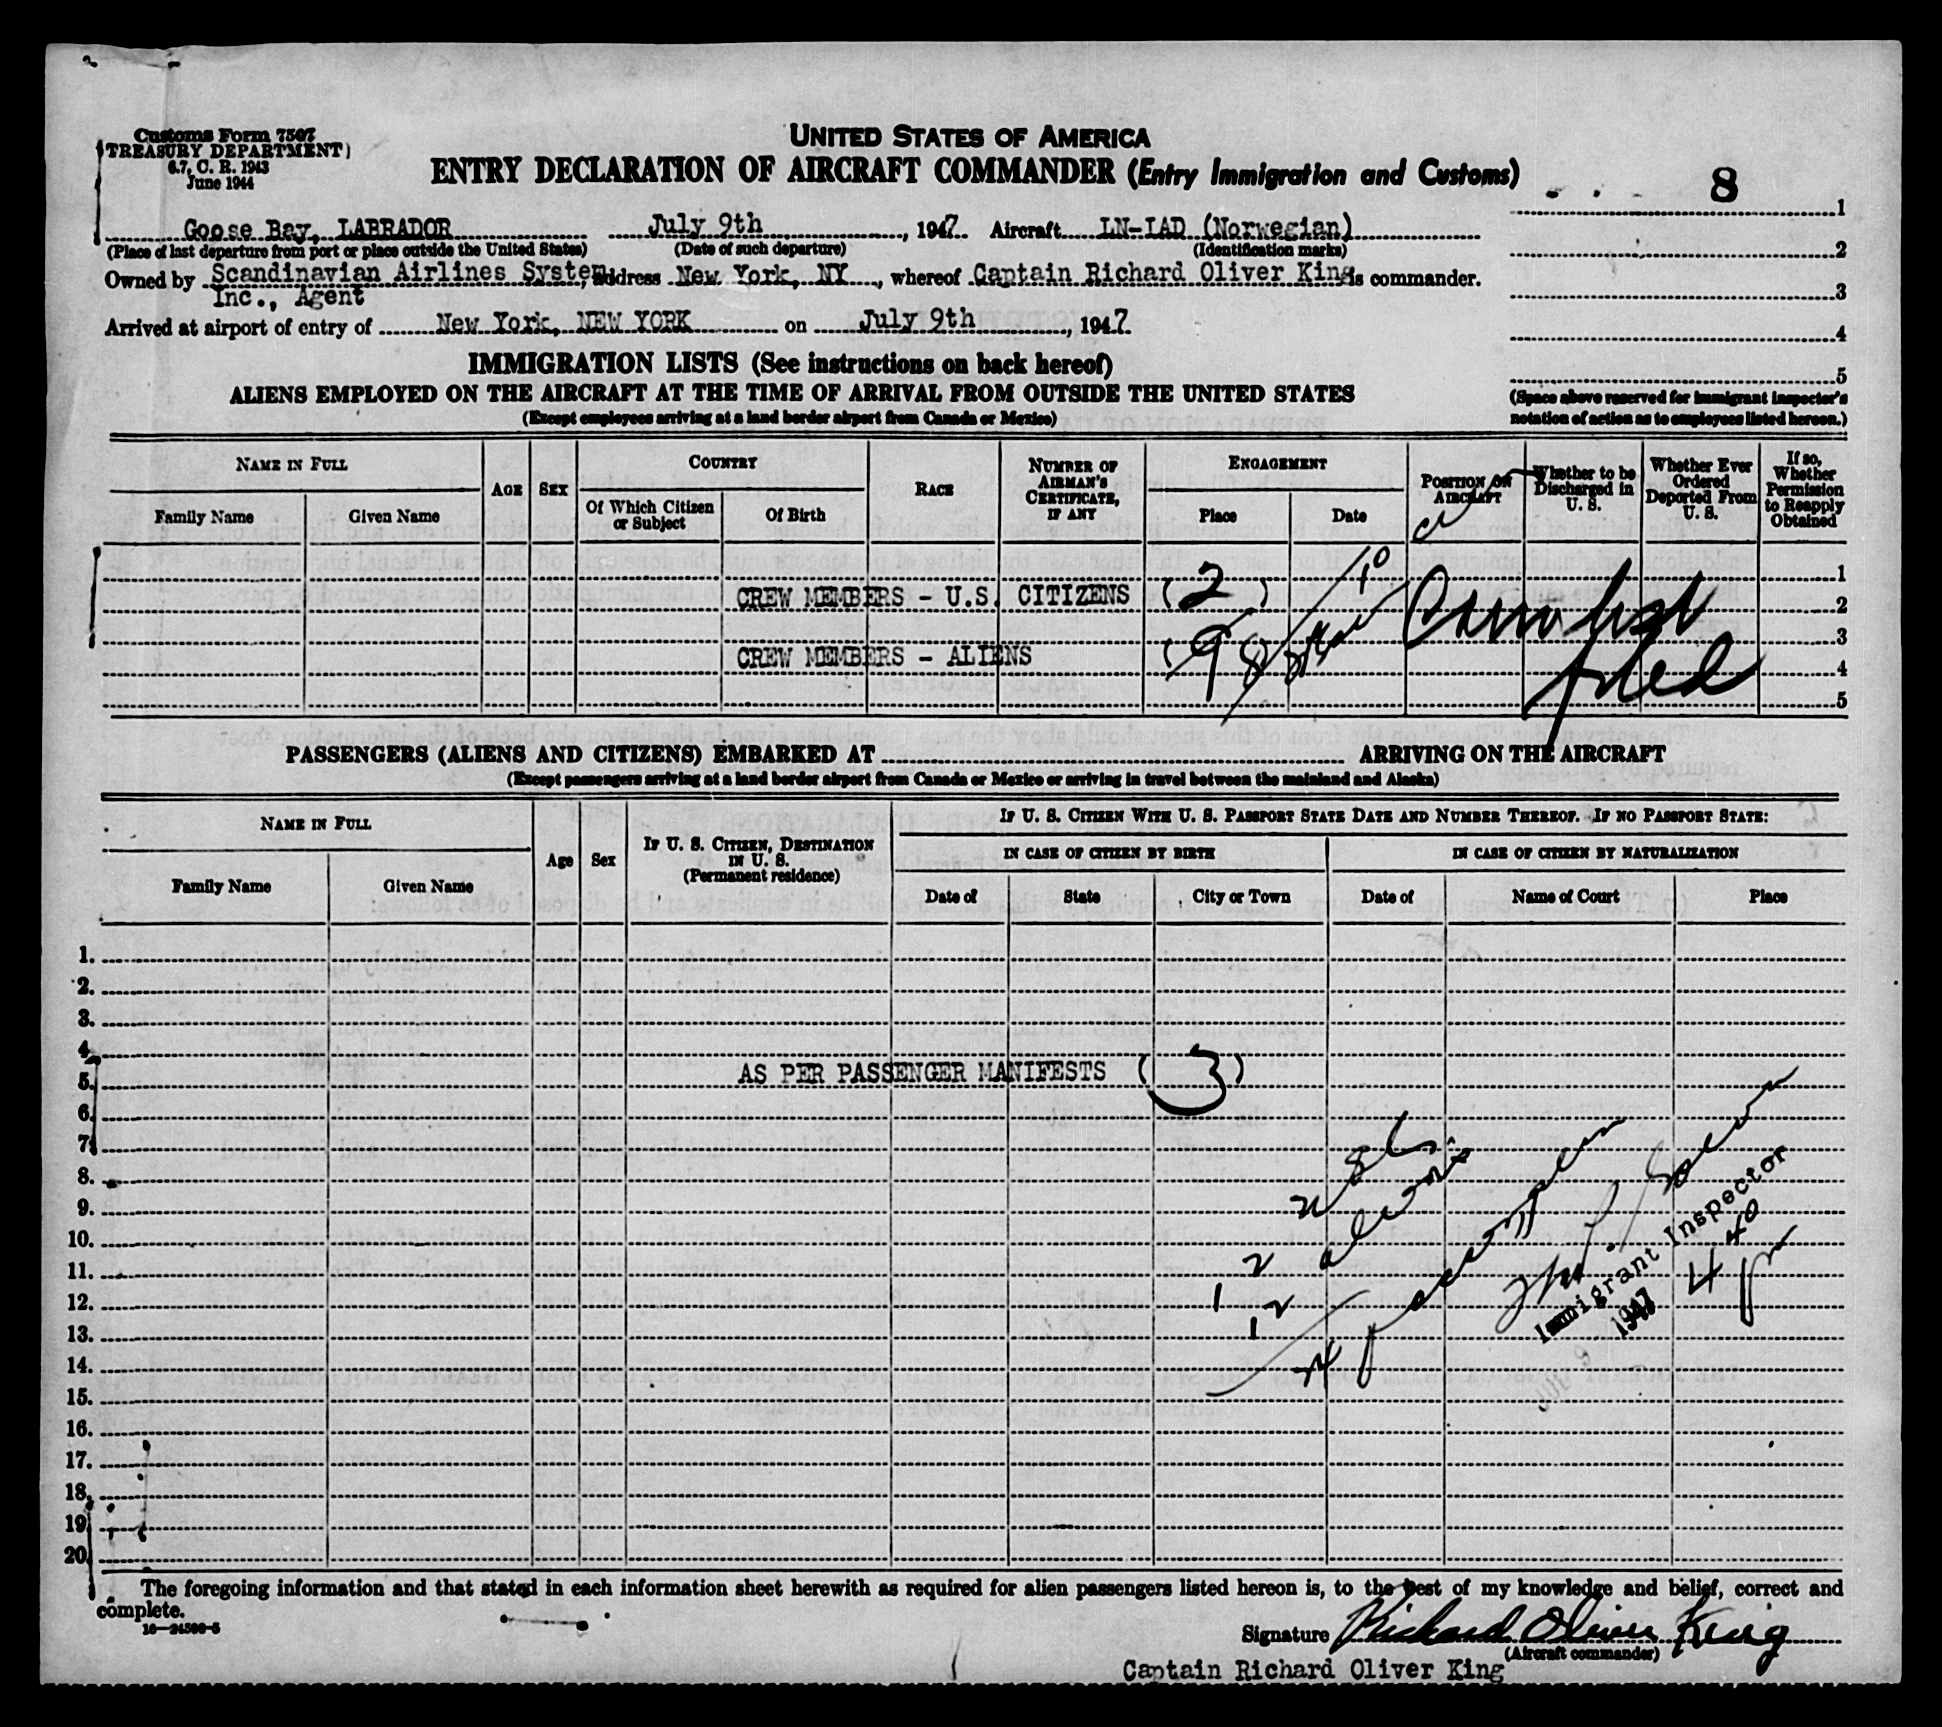 Customs Form 7507
TREASURY DEPARTMENT)
6.7, C. R. 1943
June 1944
UNITED STATES OF AMERICA
ENTRY DECLARATION OF AIRCRAFT COMMANDER (Entry Immigration and Customs)
8
1
Goose Bay, LABRADOR July 9th, 1947. Aircraft LN-IAD (Norwegian)
(Place of last departure from port or place outside the United States) (Date of such departure) (Identification marks)
2
Owned by Scandinavian Airlines System, address New York, NY, whereof Captain Richard Oliver King is commander.
Inc., Agent
3
Arrived at airport of entry of New York, NEW YORK on July 9th, 1947.
4
IMMIGRATION LISTS (See instructions on back hereof)
5
ALIENS EMPLOYED ON THE AIRCRAFT AT THE TIME OF ARRIVAL FROM OUTSIDE THE UNITED STATES
(Except employees arriving at a land border airport from Canada or Mexico)
(Space above reserved for immigrant inspector's
notation of action as to employees listed hereon.)
NAME IN FULL
Family Name
Given Name
AGE
SEX
COUNTRY
Of Which Citizen
or Subject
Of Birth
RACE
NUMBER OF
AIRMAN'S
CERTIFICATE,
IF ANY
ENGAGEMENT
Place
Date
POSITION ON
AIRCRAFT
Whether to be
Discharged in
U. S.
Whether Ever
Ordered
Deported From
U. S.
If so,
Whether
Permission
to Reapply
Obtained
1
CREW MEMBERS - U.S. CITIZENS (2)
10
2
3
CREW MEMBERS - ALIENS (9
8
4
filed
5
PASSENGERS (ALIENS AND CITIZENS) EMBARKED AT ARRIVING ON THE AIRCRAFT
(Except passengers arriving at a land border airport from Canada or Mexico or arriving in travel between the mainland and Alaska)
NAME IN FULL
Family Name
Given Name
Age
Sex
IF U. S. CITIZEN, DESTINATION
IN U. S.
(Permanent residence)
IF U. S. CITIZEN WITH U. S. PASSPORT STATE DATE AND NUMBER THEREOF. IF NO PASSPORT STATE:
IN CASE OF CITIZEN BY BIRTH
Date of
State
City or Town
IN CASE OF CITIZEN BY NATURALIZATION
Date of
Name of Court
Place
1.
2.
3.
4.
5.
AS PER PASSENGER MANIFESTS (3)
6.
7.
8.
9.
10.
11.
12.
13.
14.
15.
16.
17.
18.
19.
20.
12 aliens
12
24 passengers
Immigrant Inspector
1947
4 40
pm
The foregoing information and that stated in each information sheet herewith as required for alien passengers listed hereon is, to the best of my knowledge and belief, correct and
complete.
16—24500-5
Signature Richard Oliver King
(Aircraft commander)
Captain Richard Oliver King